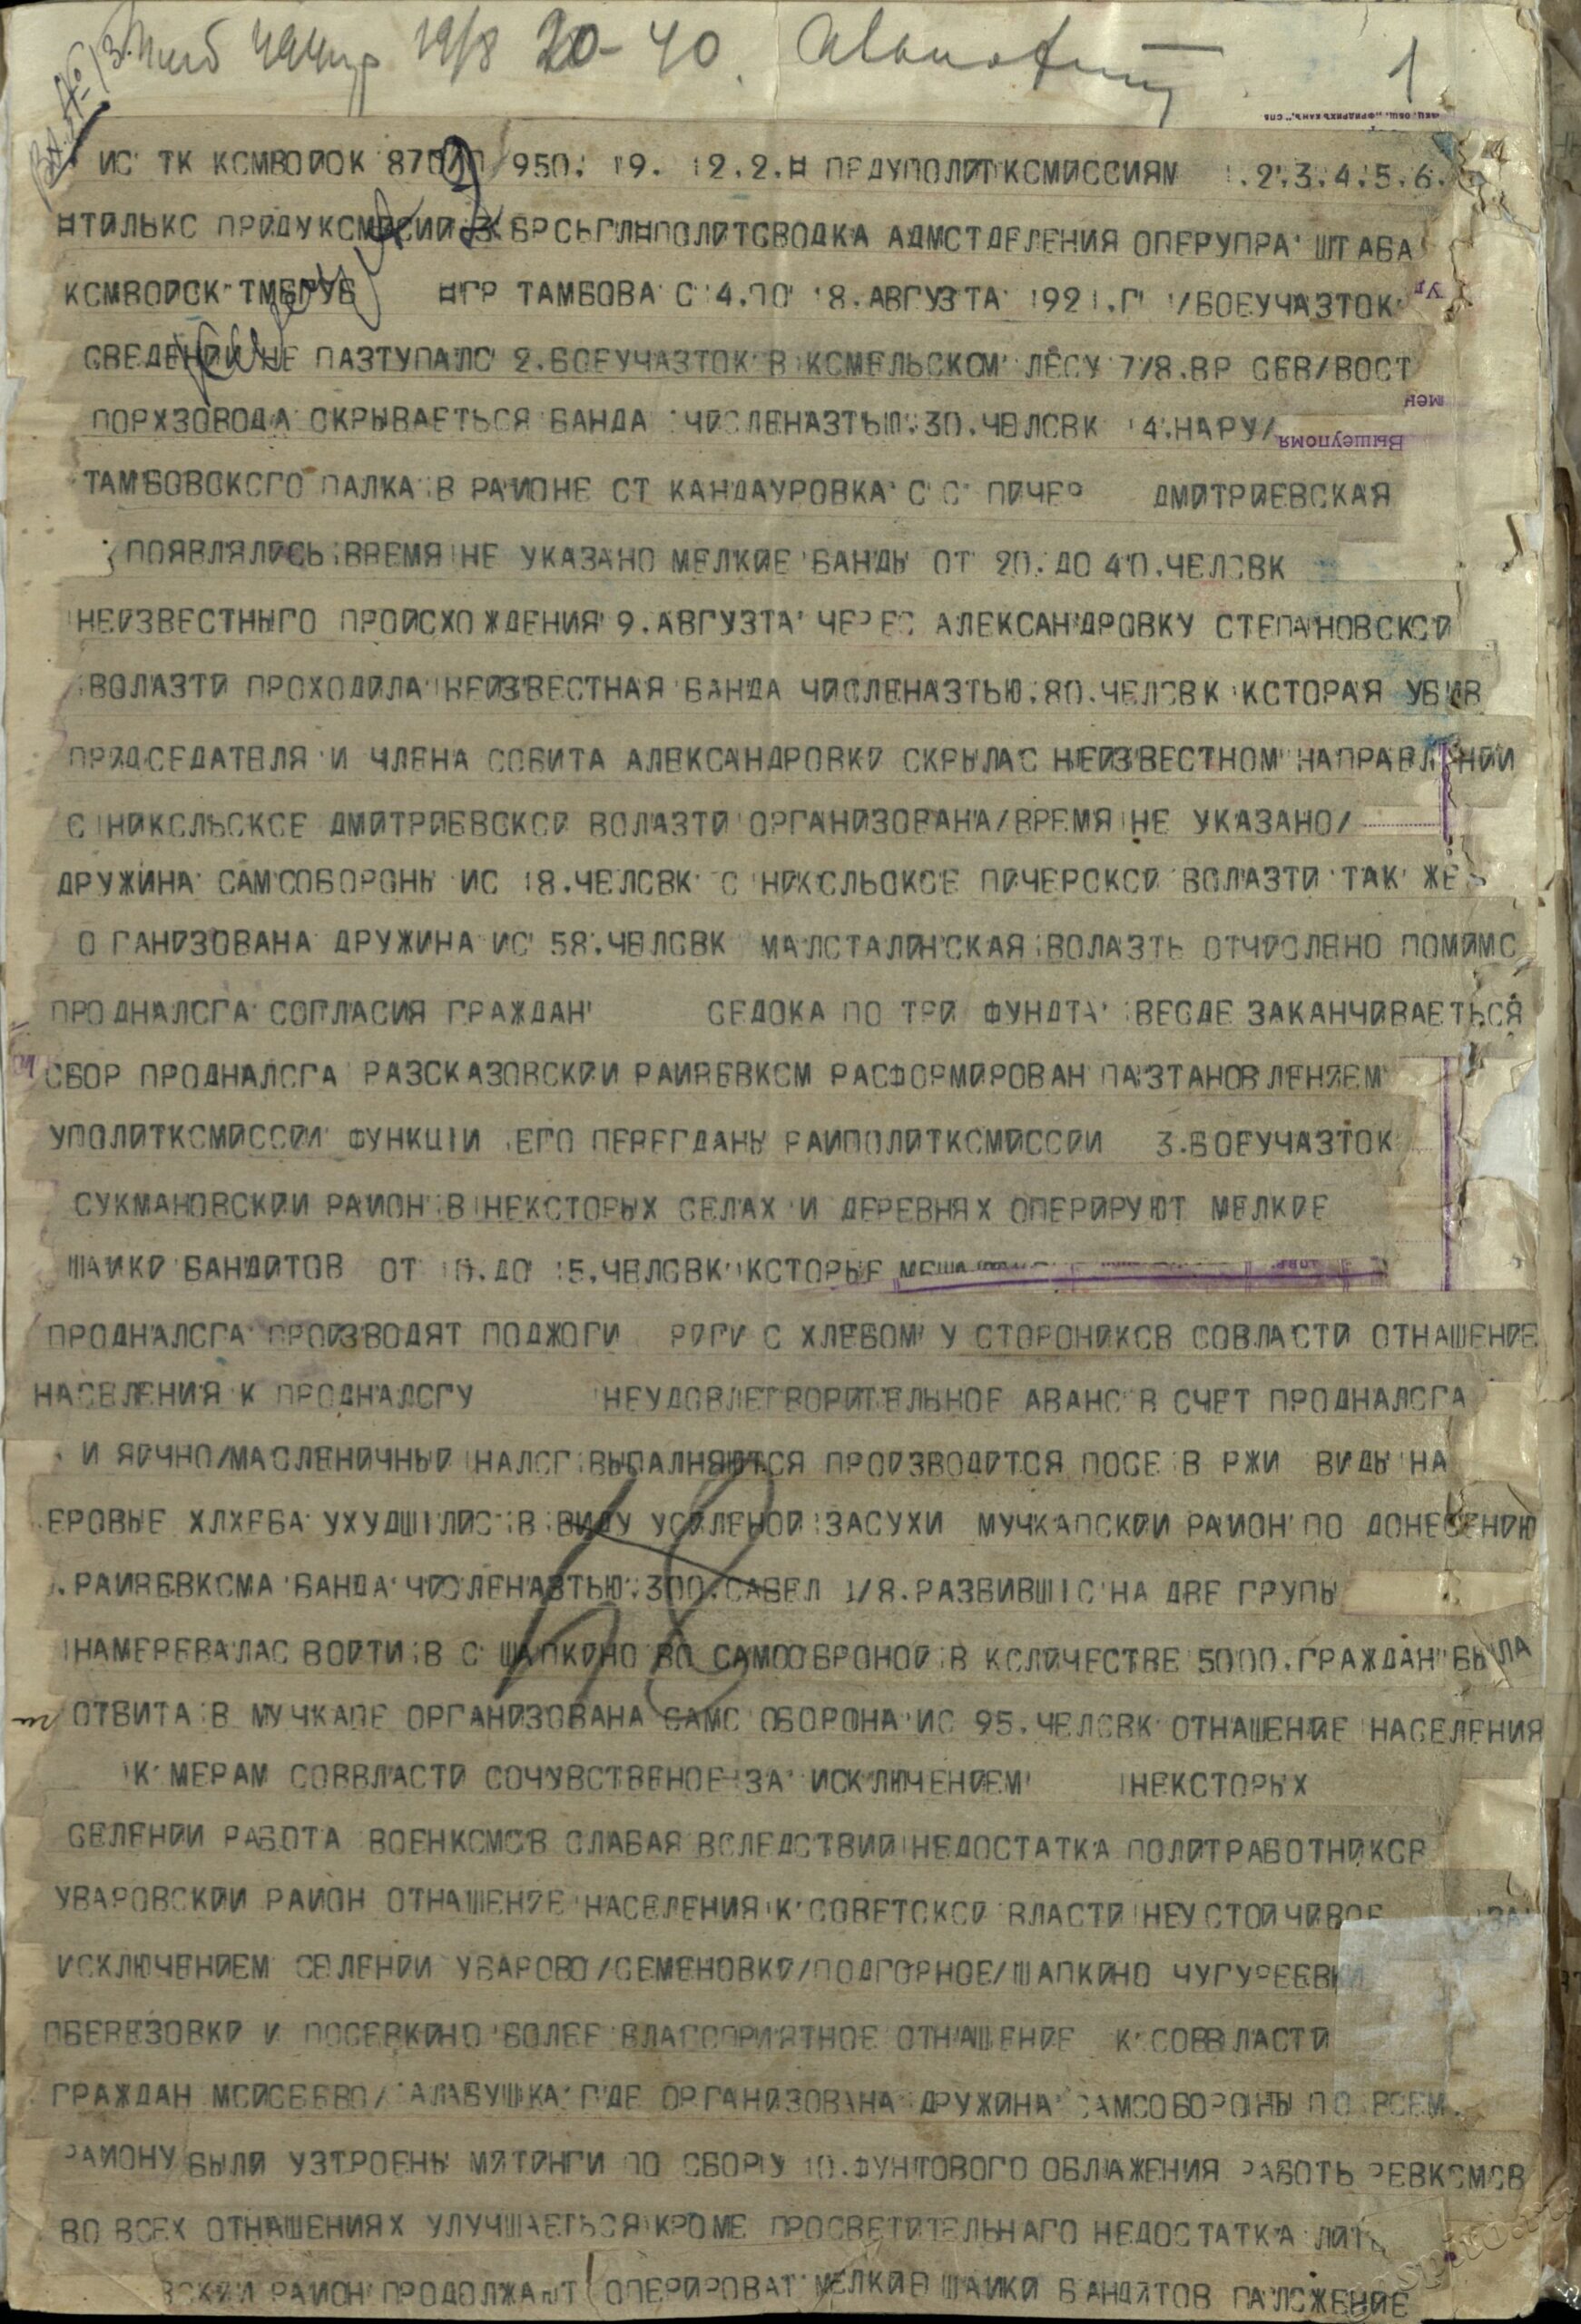 19/8 20-40. 1
ИС ТК КСМВОЙОК 950. 19. 12.2.Н ПРДУПОЛИТКСМИССИЯМ 1.2.3.4.5.6.
НТИЛЬКС ПРИДУКСМИСИИ ПОЛИТСВОДКА АДМСТДЕЛЕНИЯ ОПЕРУПРА ШТАБА
КСМВОЙСК ТМБГУБ НГР ТАМБОВА С 4.ПО 8.АВГУЗТА 1921.Г /БОЕУЧАЗТОК
СВЕДЕНИЙ НЕ ПАЗТУПАЛО 2.БОЕУЧАЗТОК В КСМЕЛЬСКОМ ЛЕСУ 7/8.ВР СЕВ/ВОСТ
ПОРХЗОВОДА СКРЫВАЕТЬСЯ БАНДА ЧИСЛЕНАЗТЬЮ.30.ЧЕЛСВК 4.НАРУ/
Вышеупомя
ТАМБОВОКСГО ПАЛКА В РАЙОНЕ СТ КАНДАУРОВКА С С ПИЧЕР ДМИТРИЕВСКАЯ
ПОЯВЛЯЛИСЬ ВРЕМЯ НЕ УКАЗАНО МЕЛКИЕ БАНДЫ ОТ 20.ДО 40.ЧЕЛСВК
НЕИЗВЕСТНЫГО ПРОИСХОЖДЕНИЯ 9.АВГУЗТА ЧЕРЕС АЛЕКСАНДРОВКУ СТЕПАНОВСКСЙ
ВОЛАЗТИ ПРОХОДИЛА НЕИЗВЕСТНАЯ БАНДА ЧИСЛЕНАЗТЬЮ.80.ЧЕЛСВК КСТОРАЯ УБИВ
ПРИДСЕДАТЕЛЯ И ЧЛЕНА СОБИТА АЛЕКСАНДРОВКИ СКРЫЛАС НЕИЗВЕСТНОМ НАПРАВЛЕНИИ
С НИКСЛЬСКСЕ ДМИТРИЕВСКСЙ ВОЛАЗТИ ОРГАНИЗОВАНА/ВРЕМЯ НЕ УКАЗАНО/
ДРУЖИНА САМСОБОРОНЫ ИС 18.ЧЕЛСВК С НИКСЛЬСКСЕ ПИЧЕРСКСЙ ВОЛАЗТИ ТАК ЖЕ
О ГАНИЗОВАНА ДРУЖИНА ИС 58.ЧЕЛСВК МАЛСТАЛИНСКАЯ ВОЛАЗТЬ ОТЧИСЛЕНО ПОМИМС
ПРОДНАЛСГА СОГЛАСИЯ ГРАЖДАН СЕДОКА ПО ТРИ ФУНДТА ВЕСДЕ ЗАКАНЧИВАЕТЬСЯ
СБОР ПРОДНАЛСГА РАЗСКАЗОВСКИЙ РАЙРЕВКСМ РАСФОРМИРОВАН ПАЗТАНОВЛЕНИЕМ
УПОЛИТКСМИССИИ ФУНКЦIИ ЕГО ПЕРЕГДАНЫ РАЙПОЛИТКСМИССИИ 3.БОЕУЧАЗТОК
СУКМАНОВСКИЙ РАЙОН В НЕКСТОРЫХ СЕЛАХ И ДЕРЕВНЯХ ОПЕРИРУЮТ МЕЛКИЕ
ШАЙКИ БАНДИТОВ ОТ 10.ДО 15.ЧЕЛСВК КСТОРЫЕ
ПРОДНАЛСГА ПРОИЗВОДЯТ ПОДЖОГИ РИГИ С ХЛЕБОМ У СТОРОНИКСВ СОВЛАСТИ ОТНАШЕНИЕ
НАСЕЛЕНИЯ К ПРОДНАЛСГУ НЕУДОВЛЕТВОРИТЕЛЬНОЕ АВАНС В СЧЕТ ПРОДНАЛСГА
И ЯИЧНО/МАСЛЕНИЧНЫЙ НАЛСГ ВЫПАЛНЯЮТСЯ ПРОИЗВОДИТСЯ ПОСЕ В РЖИ ВИДЫ НА
ЕРОВЫЕ ХЛХЕБА УХУДШIЛИС В ВИДУ УСИЛЕНОЙ ЗАСУХИ МУЧКАПСКИЙ РАЙОН ПО ДОНЕСЕНИЮ
РАЙРЕВКСМА БАНДА ЧИСЛЕНАЗТЬЮ.300.САБЕЛ 1/8.РАЗБИВШIС НА ДВЕ ГРУПЫ
НАМЕРЕВАЛАС ВОЙТИ В С ШАПКИНО ВО САМООБРОНОЙ В КСЛИЧЕСТВЕ 5000.ГРАЖДАН БЫЛА
ОТБИТА В МУЧКАПЕ ОРГАНИЗОВАНА САМС ОБОРОНА ИС 95.ЧЕЛСВК ОТНАШЕНИЕ НАСЕЛЕНИЯ
К МЕРАМ СОВВЛАСТИ СОЧУВСТВЕНОЕ ЗА ИСКЛЮЧЕНИЕМ НЕКСТОРЫХ
СЕЛЕНИЙ РАБОТА ВОЕНКСМСВ СЛАБАЯ ВСЛЕДСТВИИ НЕДОСТАТКА ПОЛИТРАБОТНИКСВ
УВАРОВСКИЙ РАЙОН ОТНАШЕНИЕ НАСЕЛЕНИЯ К СОВЕТСКСЙ ВЛАСТИ НЕУСТОЙЧИВОЕ ЗА
ИСКЛЮЧЕНИЕМ СЕЛЕНИЙ УВАРОВО/СЕМЕНОВКИ/ПОДГОРНОЕ/ШАПКИНО ЧУГУРЕЕВКИ
ПБЕРЕЗОВКИ И ПОСЕВКИНО БОЛЕЕ БЛАГОПРИЯТНОЕ ОТНАШЕНИЕ К СОВВЛАСТИ
ГРАЖДАН МСИСЕЕВО/ АЛАБУШКА ГДЕ ОРГАНИЗОВАНА ДРУЖИНА САМСОБОРОНЫ ПО ВСЕМ
РАЙОНУ БЫЛИ УЗТРОЕНЫ МИТИНГИ ПО СБОРУ 10.ФУНТОВОГО ОБЛАЖЕНИЯ РАБОТЬ РЕВКСМСВ
ВО ВСЕХ ОТНАШЕНИЯХ УЛУЧШАЕТЬСЯ КРОМЕ ПРОСВЕТИТЕЛЬНАГО НЕДОСТАТКА ЛИТ
ВСКИЙ РАЙОН ПРОДОЛЖАЮТ ОПЕРИРОВАТ МЕЛКИЕ ШАЙКИ БАНДИТОВ ПАЛСЖЕНИЕ